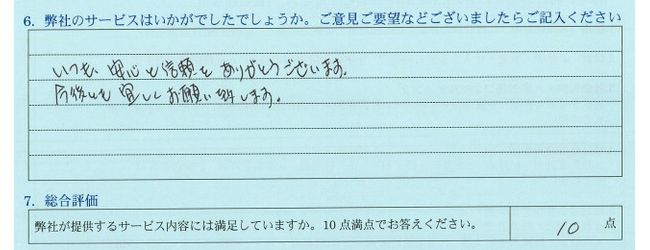 6. 弊社のサービスはいかがでしたでしょうか。ご意見ご要望などございましたらご記入ください
いつも、安心と信頼をありがとうございます。
今後とも宜しくお願い致します。
7. 総合評価
弊社が提供するサービス内容には満足していますか。10点満点でお答えください。 10 点